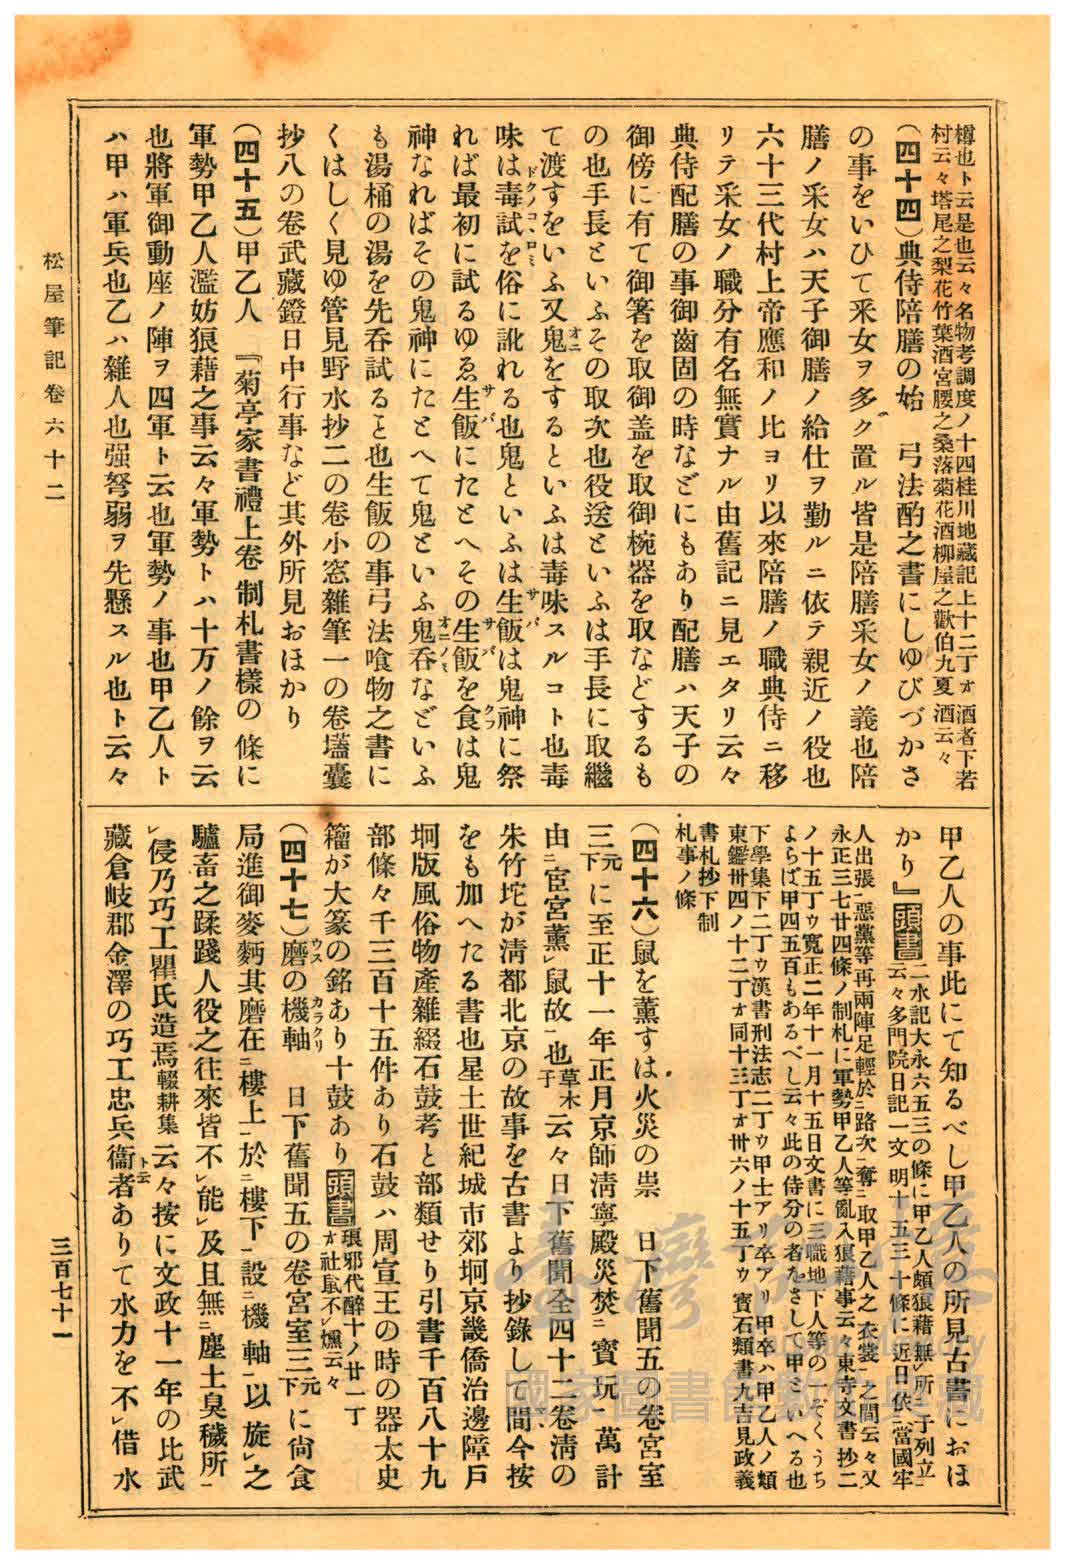 樽也ト云是也云々名物考調度ノ十四桂川地藏記上十二丁オ酒者下若
村云々塔尾之梨花竹葉酒宮腰之桑落菊花酒柳屋之歡伯九夏酒云々
(四十四)典侍陪膳の始　弓法酌之書にしゆびづかさ
の事をいひて釆女ヲ多ク置ル皆是陪膳采女ノ義也陪
膳ノ采女ハ天子御膳ノ給仕ヲ勤ルニ依テ親近ノ役也
六十三代村上帝應和ノ比ヨリ以來陪膳ノ職典侍ニ移
リテ采女ノ職分有名無實ナル由舊記ニ見エタリ云々
典侍配膳の事御齒固の時などにもあり配膳ハ天子の
御傍に有て御箸を取御盖を取御椀器を取などするも
の也手長といふその取次也役送といふは手長に取繼
て渡すをいふ又鬼オニをするといふは毒味スルコト也毒
味は毒試ドクノコヽロミを俗に訛れる也鬼といふは生飯サバは鬼神に祭
れば最初に試るゆゑ生飯サバにたとへその生飯サバを食クフは鬼
神なればその鬼神にたとへて鬼といふ鬼呑オニノミなどいふ
も湯桶の湯を先呑試ると也生飯の事弓法喰物之書に
くはしく見ゆ管見野水抄二の卷小窓雜筆一の卷壒囊
抄八の卷武藏鐙日中行事など其外所見おほかり
(四十五)甲乙人　『菊亭家書禮上卷制札書樣の條に
軍勢甲乙人濫妨狼藉之事云々軍勢トハ十万ノ餘ヲ云
也將軍御動座ノ陣ヲ四軍ト云也軍勢ノ事也甲乙人ト
ハ甲ハ軍兵也乙ハ雜人也强弩弱ヲ先懸スル也ト云々
甲乙人の事此にて知るべし甲乙人の所見古書におほ
かり』頭書二水記大永六五三の條に甲乙人頗狼藉無レ所二于列立一
云々多門院日記一文明十五三十條に近日依二當國牢
人出張一惡黨等再兩陣足輕於二路次一奪二取甲乙人之衣裳一之間云々又
永正三七廿四條ノ制札に軍勢甲乙人等亂入狼藉事云々東寺文書抄二
ノ十五丁ウ寬正二年十一月十五日文書に三職地下人等のこぞくうち
よらば甲四五百もあるべし云々此の侍分の者をさして甲といへる也
下學集下二丁ウ漢書刑法志二丁ウ甲士アリ卒アリ甲卒ハ甲乙人ノ類
東鑑卅四ノ十二丁オ同十三丁オ卅六ノ十五丁ウ寶石類書九吉見政義
書札抄下制
札事ノ條
(四十六)鼠を薰すは火災の祟　日下舊聞五の卷宮室
三元下に至正十一年正月京師淸寧殿災焚二寶玩一萬計
由二宦宮薰レ鼠故一也草木子云々日下舊聞全四十二卷淸の
朱竹垞が淸都北京の故事を古書より抄錄して間今按
をも加へたる書也星土世紀城市郊坰京畿僑治邊障戶
坰版風俗物產雜綴石鼓考と部類せり引書千百八十九
部條々千三百十五件あり石鼓ハ周宣王の時の器太史
籀が大篆の銘あり十鼓あり頭書琅邪代醉十ノ廿一丁
オ社鼠不レ燻云々
(四十七)磨ウスの機軸カラクリ　日下舊聞五の卷宮室三元下に尙食
局進御麥麪其磨在二樓上一於二樓下一設二機軸一以旋レ之
驢畜之蹂踐人役之往來皆不レ能レ及且無二塵土臭穢所一
レ侵乃巧工瞿氏造焉輟耕集云々按に文政十一年の比武
藏倉岐郡金澤の巧工忠兵衞ト云者ありて水力を不レ借水
松屋筆記卷六十二
三百七十一
臺灣
Taiwan
國家圖書館數位典藏